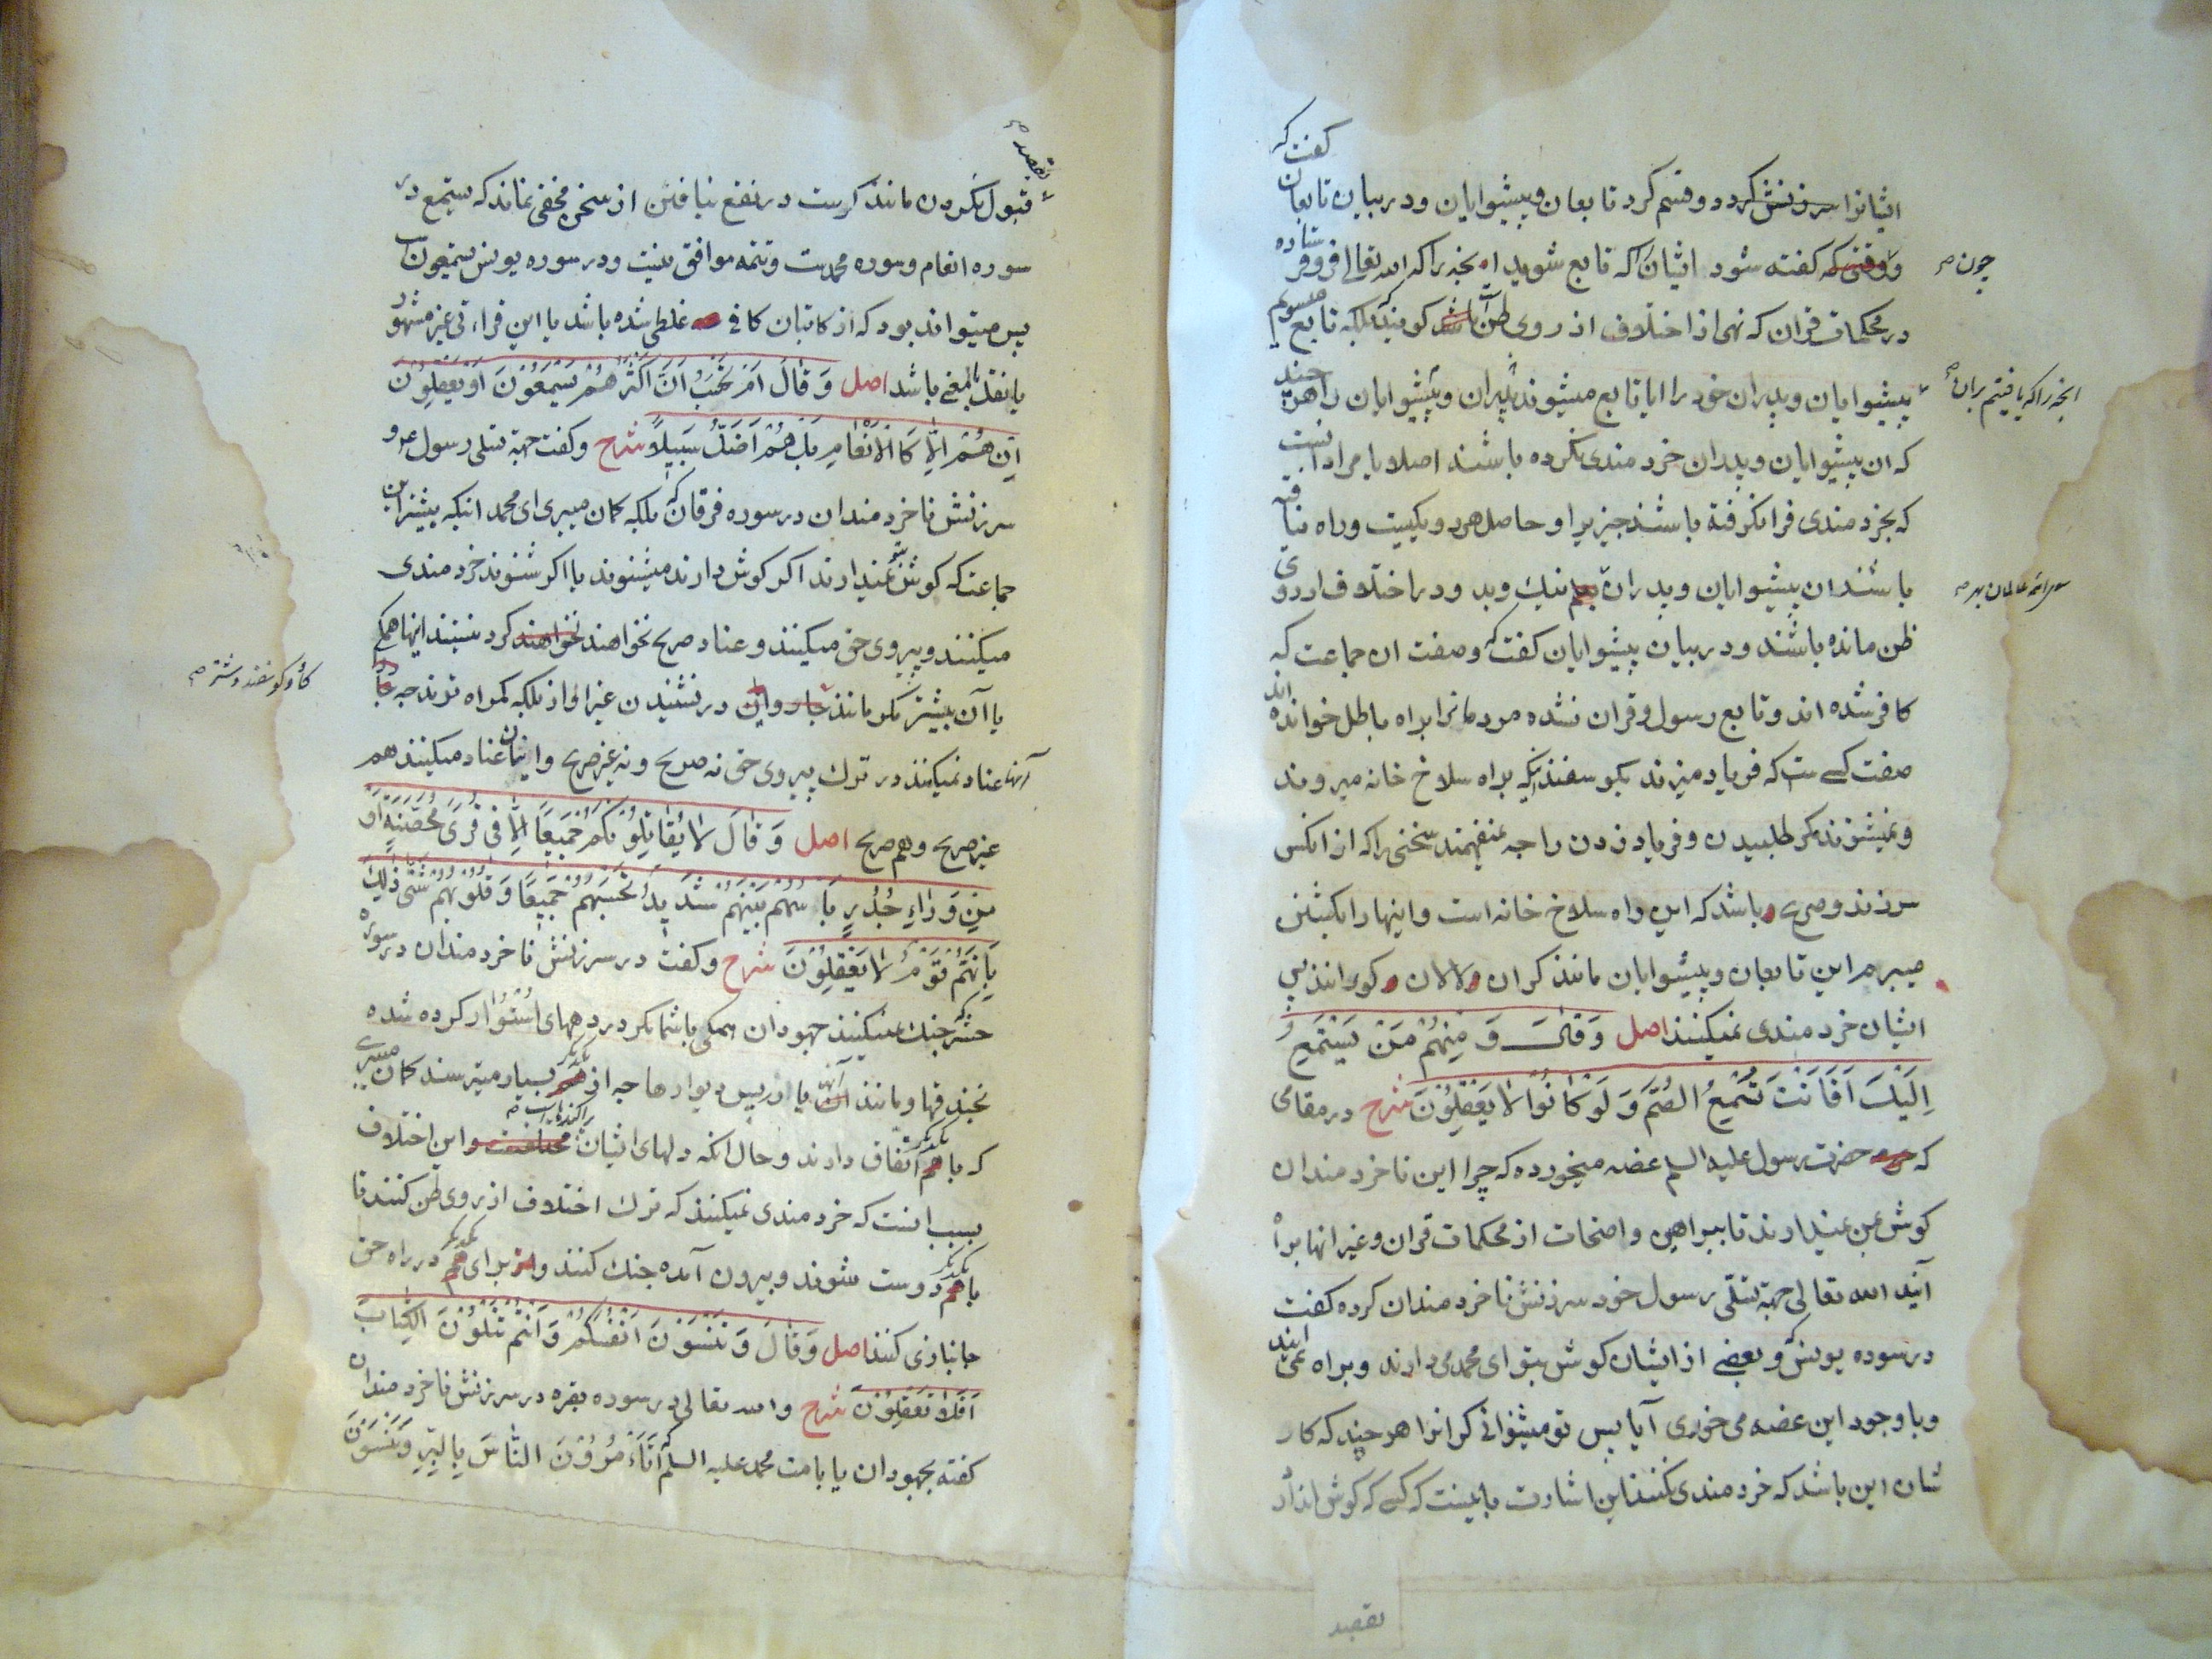 کفت که
ایشانرا سرزنش کرد دو قسم کرد تابعان و پیشوایان و در بیان تابعان
چون
و وقتی که کفته شود ایشان را که تابع شوید انچه را که الله تعالی فرو فرستاده
در محکمات قران که نهی از اختلاف از روی ظن باشد کویند که بلکه تابع میشویم
انچه را که یافتیم بران
پیشوایان و پدران خود را ایا تابع میشوند پدران و پیشوایان را هر چند
که ان پیشوایان و پدران خردمندی نکرده باشند اصلا یا مراد انست
که بخردمندی فرا نکرفته باشند چیزیرا و حاصل هر دو یکیست و راه نیافته
باشند ان پیشوایان و پدران بعلم نیک و بد و در اختلاف از روی
ظن مانده باشند و در بیان پیشوایان کفت که وصفت ان جماعت که
کافر شده اند و تابع رسول و قران نشده مردمانرا براه باطل خوانده اند
صفت کسی ست که فریاد میزند بکوسفندانیکه براه سلاخ خانه میروند
و نمیشنوند مکر طلبیدن و فریاد زدن را چه نمیفهمند سخنی را که از انکس
سرزند و صریح باشد که این راه سلاخ خانه است و اینها را بکشتن
میبرم این تابعان و پیشوایان مانند کران و لالان و کورانند پس
ایشان خردمندی نمیکنند اصل وَ قالَ وَ مِنْهُمْ مَنْ يَسْتَمِعُ
اِلَيْكَ اَفَاَنْتَ تُسْمِعُ الصُّمَّ وَ لَوْ كَانُوا لَا يَعْقِلُوْنَ شرح در مقامی
که حضرت رسول علیه السلم غصه میخورده که چرا این ناخردمندان
کوش بمن نمیدارند تا ببراهین واضحات از محکمات قران و غیر انها براه
آیند الله تعالی جهة تسلی رسول خود سرزنش ناخردمندان کرده کفت
در سوره یونس که و بعضی از ایشان کوش بتو ای محمد می دارند و براه نمی آیند
و با وجود این غصه می خوری آیا پس تو میشنوانی کرانرا هر چند که کار
شان این باشد که خردمندی نکنند این اشارت باینست که کسی که کوش اندازد
بقصد
بقصد
قبول نکردن مانند کریست در نفع نیافتن از سخن مخفی نماند که یستمع در
سوره انعام و سوره محمدست و تتمه موافق نیست و در سوره یونس یستمعون است
پس میتواند بود که از کاتبان کافی غلطی شده باشد یا این قراءتی غیر مشهور
یا نقل بالمعنی باشد اصل وَ قَالَ اَمْ تَحْسَبُ اَنَّ اَكْثَرَهُمْ يَسْمَعُوْنَ اَوْ يَعْقِلُوْنَ
اِنْ هُمْ اِلَّا كَالْاَنْعَامِ بَلْ هُمْ اَضَلُّ سَبِيلاً شرح و کفت جهة تسلی رسول خود و
سرزنش ناخردمندان در سوره فرقان که بلکه کمان میبری ای محمد اینکه بیشتر این
جماعت که کوش بتو نمیدارند اکر کوش دارند میشنوند یا اکر شنوند خردمندی
میکنند و پیروی حق میکنند و عناد صریح نخواهند نخواهند کرد نیستند اینها همکی
کاو و کوسفند و شتر
یا آن بیشتر مکر مانند در نشنیدن غیر آواز بلکه کمراه ترند چه
آنها عناد نمیکنند در ترک پیروی حق نه صریح و نه غیر صریح و ایشان عناد میکنند هم
غیر صریح و هم صریح اصل وَ قالَ لَا يُقَاتِلُوْنَكُمْ جَمِيْعًا اِلَّا فِي قُرًى مُحَصَّنَةٍ اَوْ
مِنْ وَرَاءِ جُدُرٍ بَأْسُهُمْ بَيْنَهُمْ شَدِيدٌ تَحْسَبُهُمْ جَمِيْعًا وَ قُلُوْبُهُمْ شَتّٰى ذٰلِكَ
بِاَنَّهُمْ قَوْمٌ لَا يَعْقِلُوْنَ شرح و کفت در سرزنش ناخردمندان در سوره
حشر که جنک نمیکنند جهودان همکی باشما مکر در دههای استوار کرده شده
بخندقها و مانند آن یا از پس دیوارها چه از یکدیکر بسیار میترسند کمان میبری
که با یکدیکر اتفاق دارند و حال انکه دلهای ایشان پراکنده است و این اختلاف
بسبب اینست که خردمندی نمیکنند که ترک اختلاف از روی ظن کنند تا
با یکدیکر دوست شوند و بیرون آمده جنک کنند و برای یکدیکر در راه حق
جانبازی کنند اصل وَ قَالَ وَ تَنْسَوْنَ اَنْفُسَكُمْ وَ اَنْتُمْ تَتْلُوْنَ الْكِتَابَ
اَفَلَا تَعْقِلُوْنَ شرح و الله تعالی در سوره بقره در سرزنش ناخردمندان
کفته بجهودان یا بامت محمد علیه السلم که اَتَاْمُرُوْنَ النَّاسَ بِالْبِرِّ وَ تَنْسَوْنَ